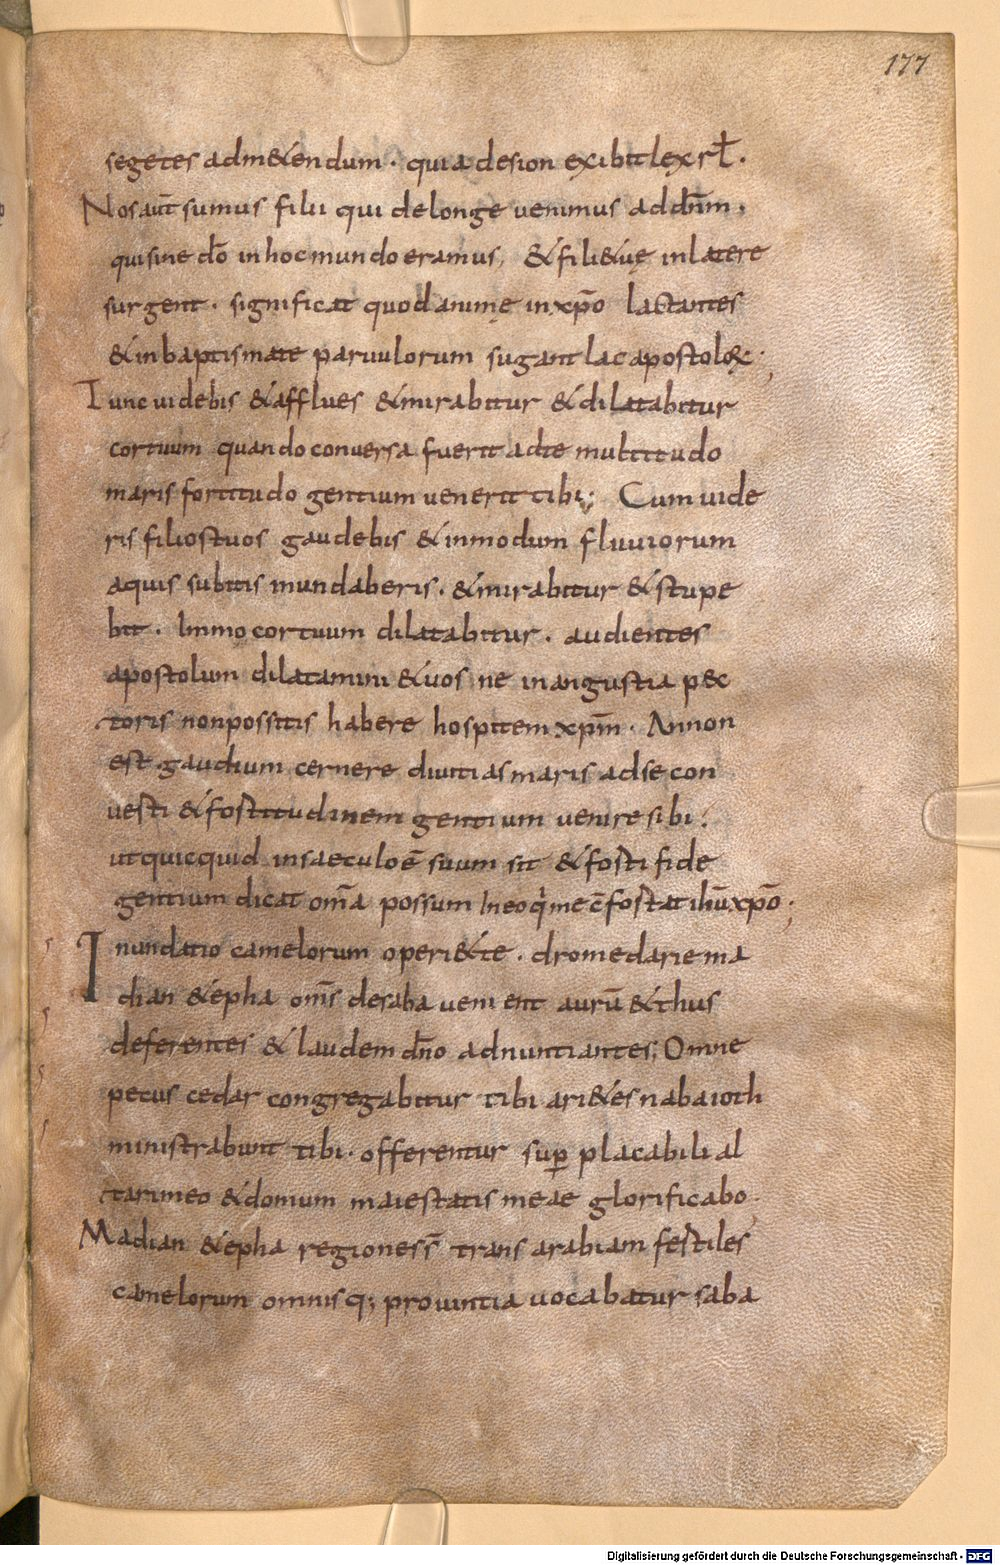 177
segetes admetendum · quia desion exibit lex rł ·
Nos aūt sumus filii qui delonge uenimus addn̄m ·
qui sine dō inhoc mundo eramus, & fili&uę inlatere
surgent · significat quod animę inxp̄o lactantes
& inbaptismate paruulorum sugant lac apostoloꝝ ·
Tunc uidebis & afflues & mirabitur & dilatabitur
cor tuum quando conuersa fuerit adte multitudo
maris fortitudo gentium uenerit tibi; Cum uide
ris filios tuos gaudebis & inmodum fluuiorum
aquis subitis mundaberis · & mirabitur & stupe
bit · Immo cor tuum dilatabitur · audientes
apostolum dilatamini & uos ne in angustia pec
toris non possitis habere hospitem xp̄m · An non
est gaudium cernere diuitias maris adse con
uerti & fortitudinem gentium uenire sibi ·
ut quicquid insaeculo ē suum sit & forti fide
gentium dicat om̄a possum Ineo q̇ me cōfortat ihū xp̄o ·
Inundatio camelorum operi&te · dromedarie ma
dian & epha om̄s desaba uenient aurū & thus
deferentes & laudem dn̄o adnuntiantes; Omne
pecus cedar congregabitur tibi ari&es nabaioth
ministrabunt tibi · offerentur suꝑ placabili al
tari meo & domum maiestatis meae glorificabo ·
Madian & epha regiones s̄ trans arabiam fertiles
camelorum omnisq; prouintia uocabatur saba
Digitalisierung gefördert durch die Deutsche Forschungsgemeinschaft - DFG